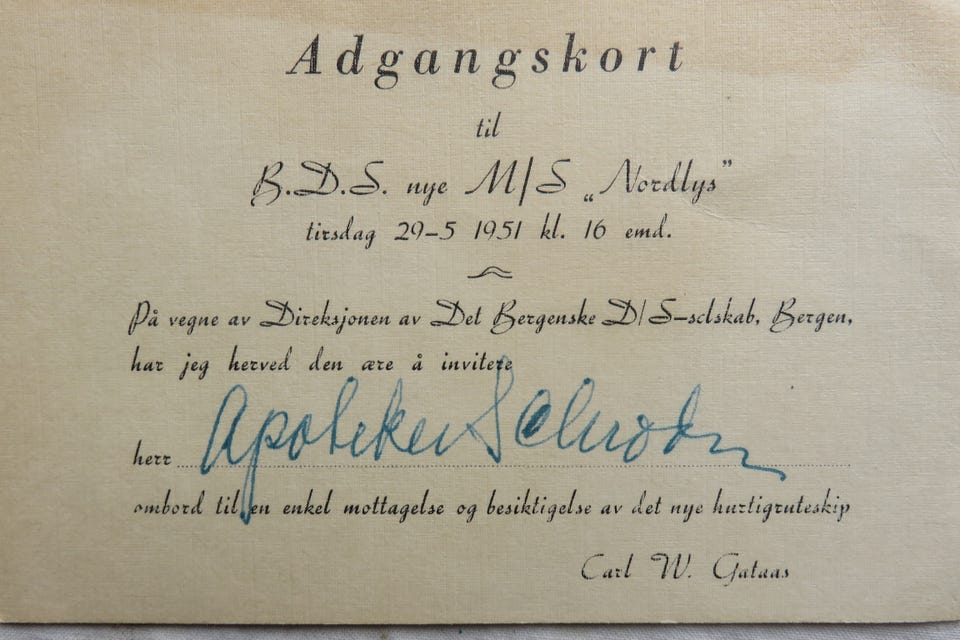 Adgangskort
til
B.D.S. nye M/S „Nordlys”
tirsdag 29-5 1951 kl. 16 emd.
På vegne av Direksjonen av Det Bergenske D/S-selskab, Bergen,
har jeg herved den ære å invitere
herr Apoteker Schrøder
ombord til en enkel mottagelse og besiktigelse av det nye hurtigruteskip
Carl W. Gataas